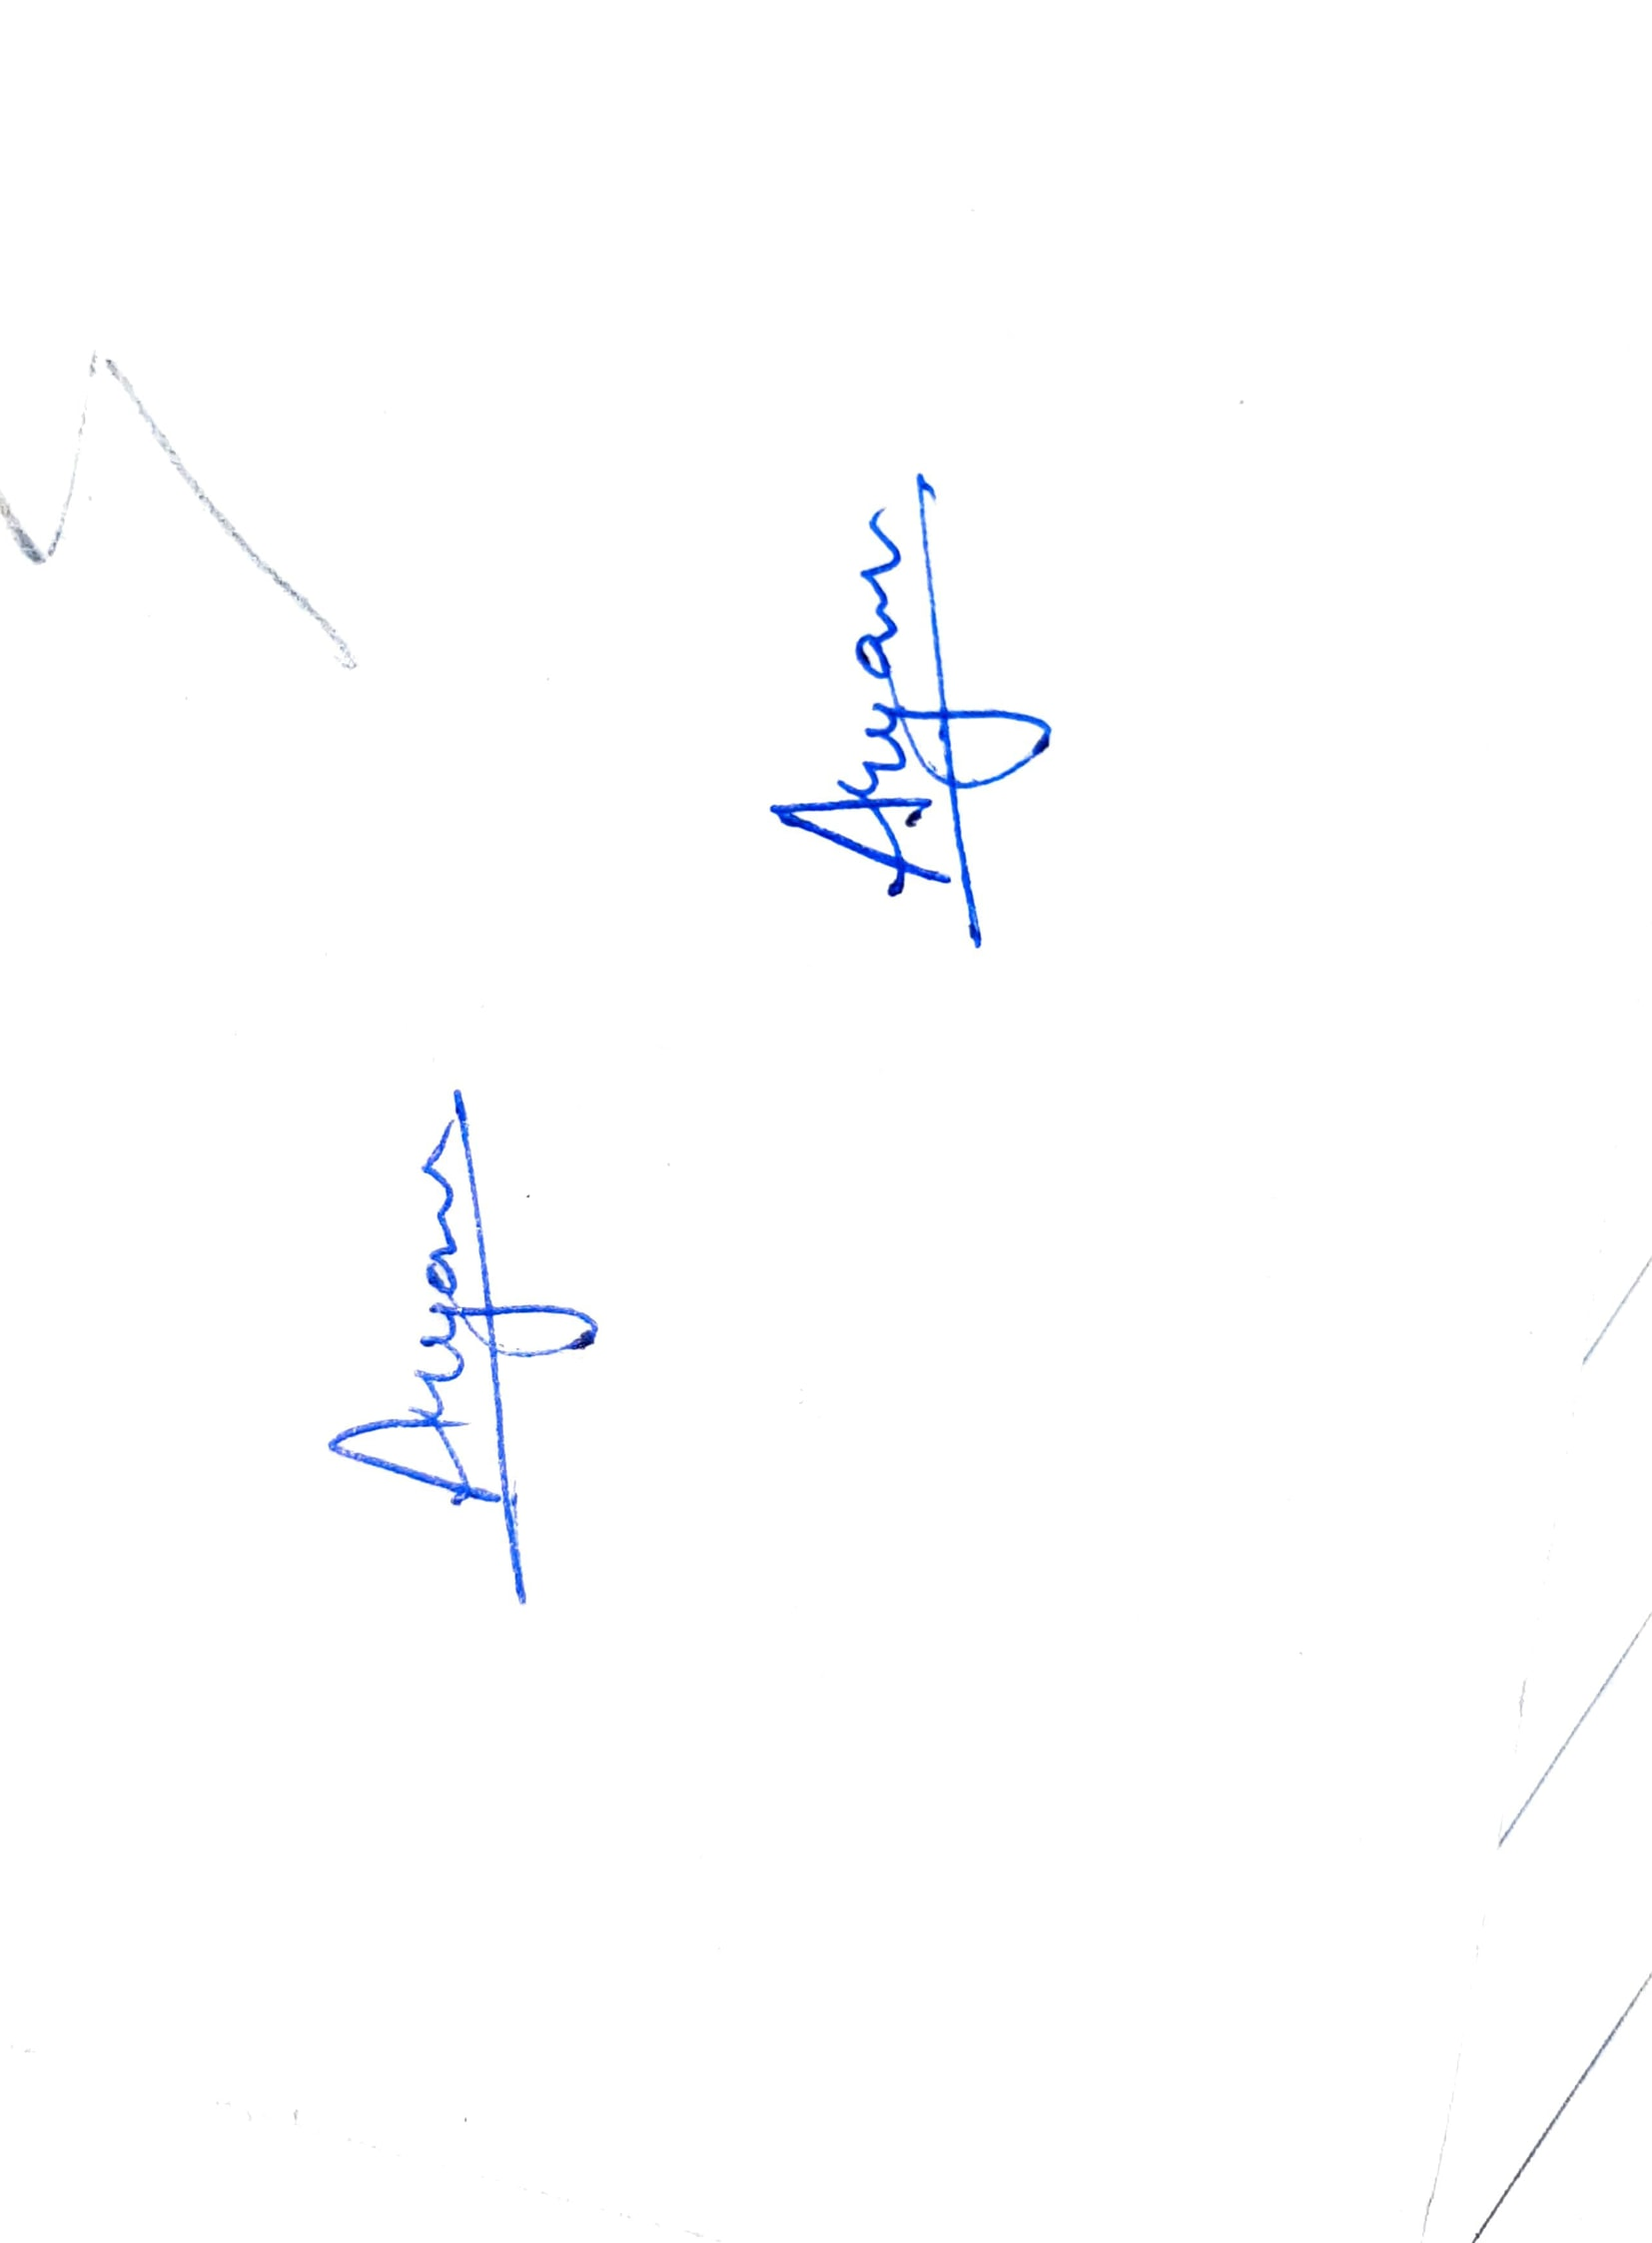 Aryan
Aryan